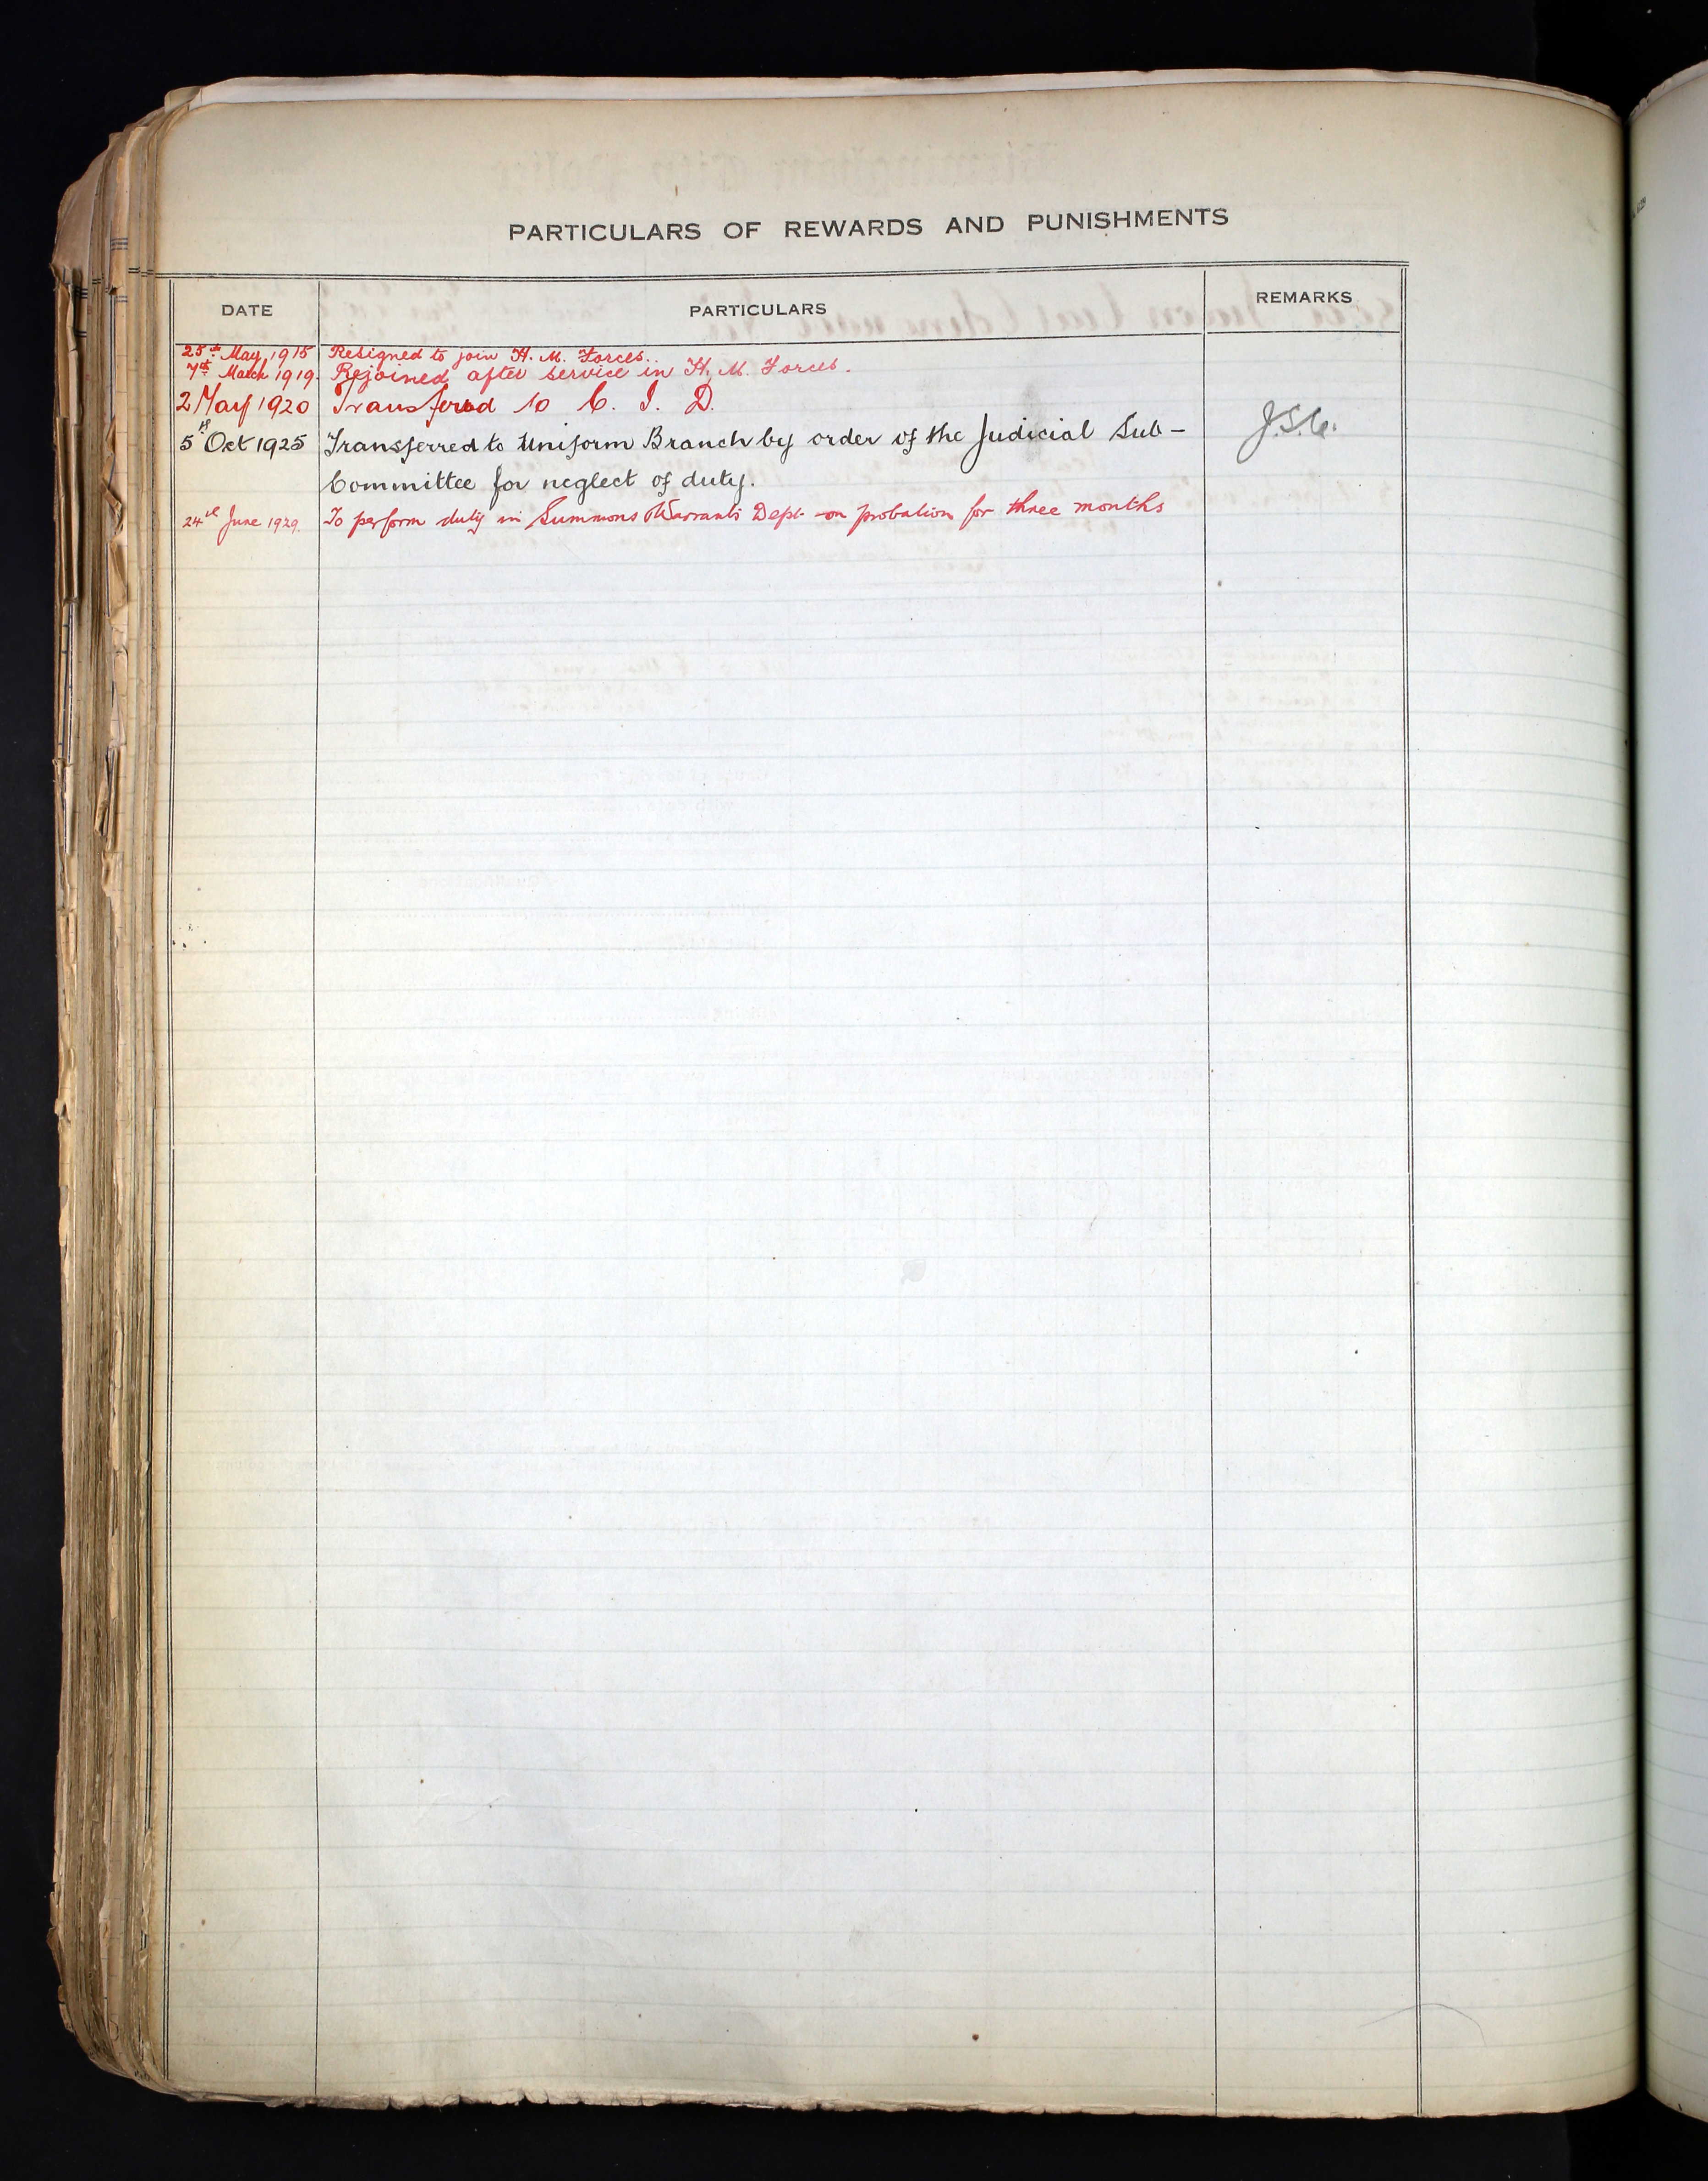 PARTICULARS OF REWARDS AND PUNISHMENTS
DATE PARTICULARS REMARKS
25th May, 1915 Resigned to join H. M. Forces.
7th March 1919. Rejoined after service in H. M. Forces.
2 May 1920 Transferred to C. I. D.
5th Oct 1925 Transferred to Uniform Branch by order of the Judicial Sub- J.S.C.
Committee for neglect of duty.
24th June 1929 To perform duty in Summons & Warrants Dept on probation for three months